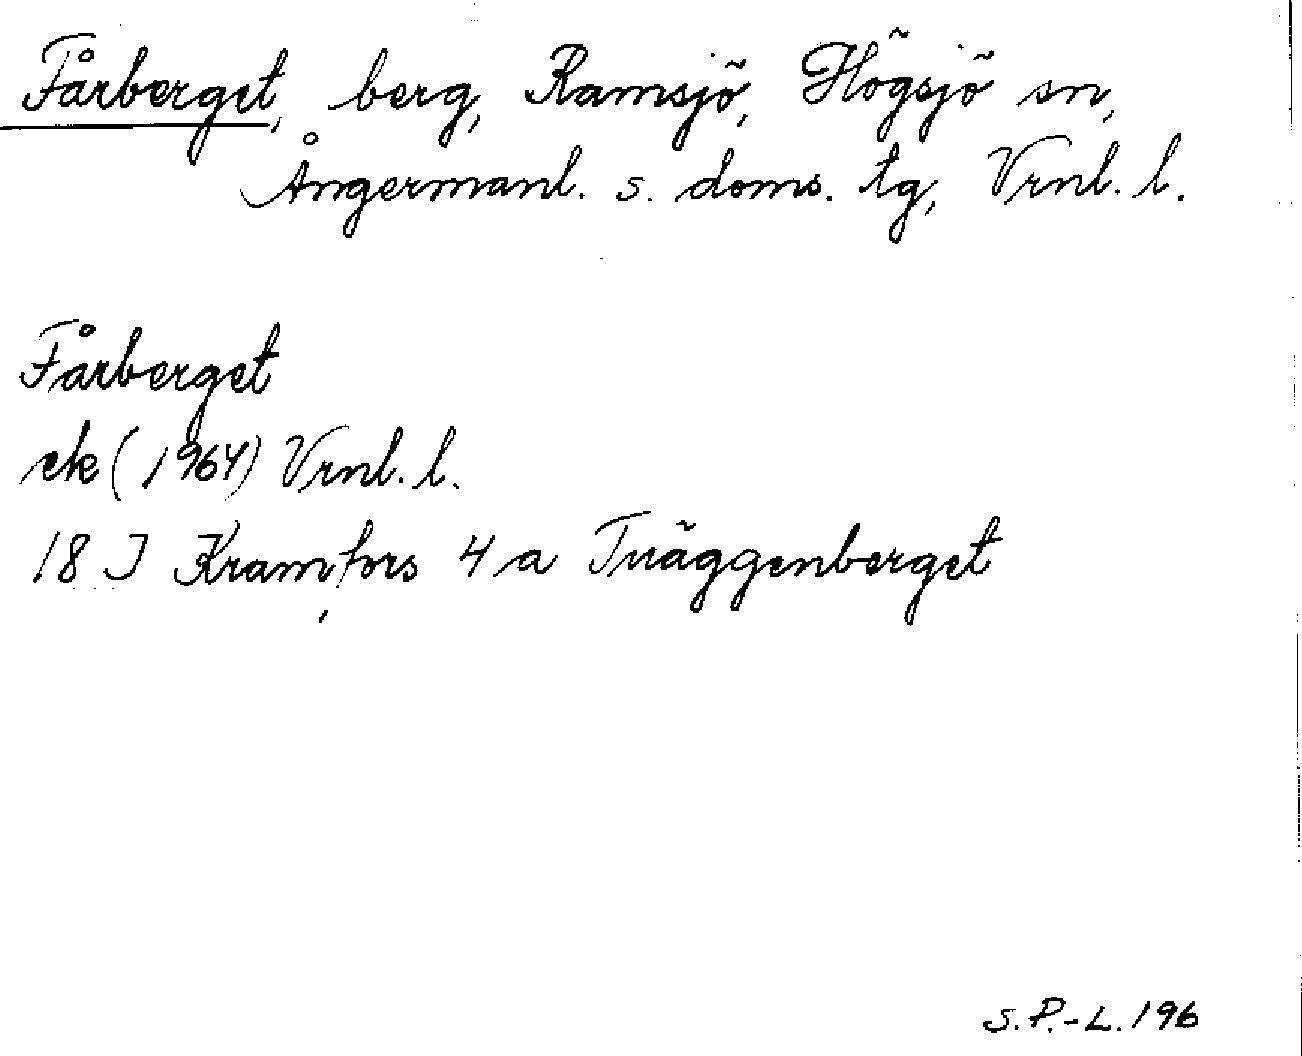 Fårberget, berg, Ramsjö, Högsjö sn,
Ångermanl. s. doms. tg, Vrnl. l.
Fårberget
ek (1964) Vrnl. l.
18 I Kramfors 4 a Tväggenberget
S.P.-L. 196